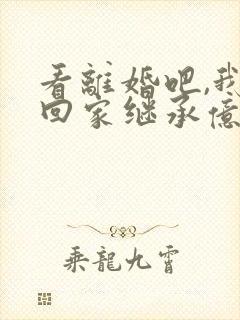 看離婚吧,我
回家继承億
乘龍九霄